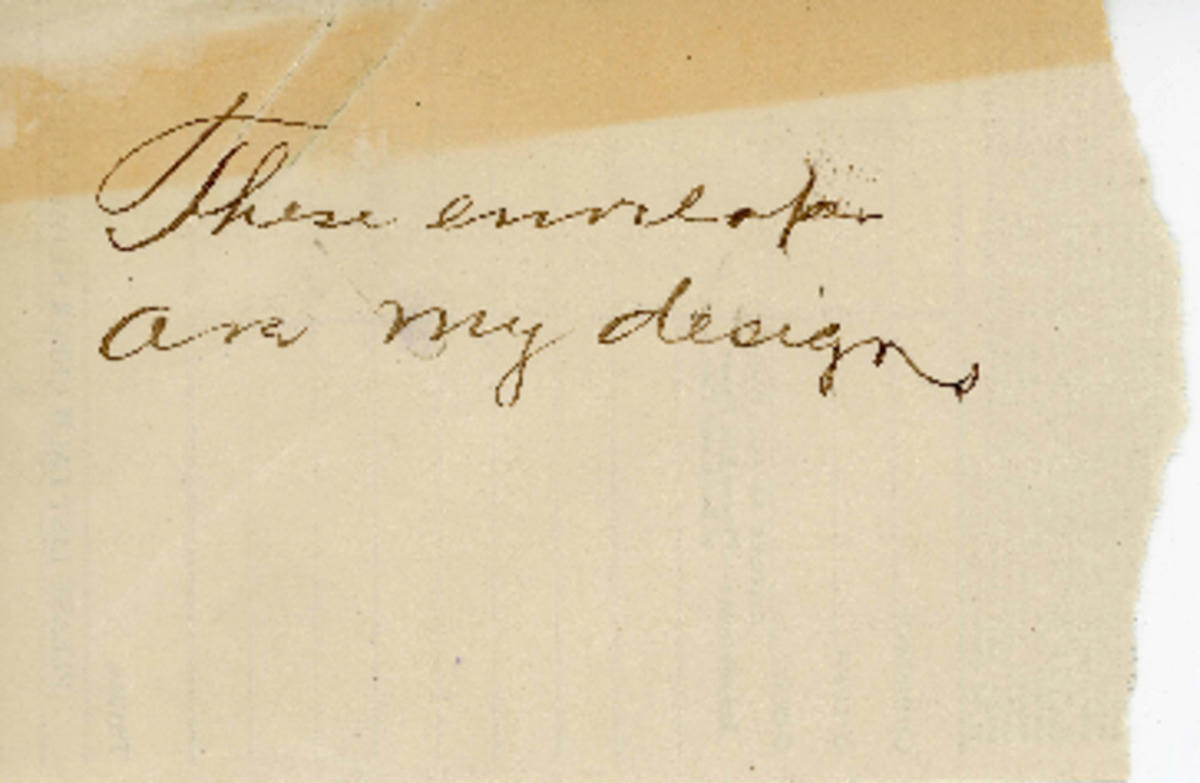 These envelopes
are my design